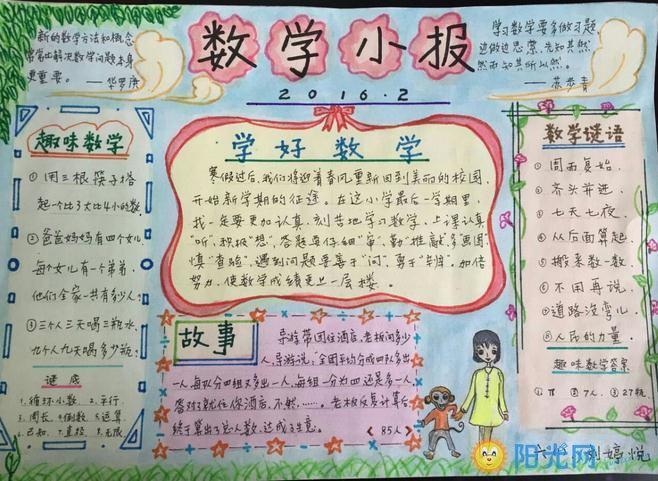 数学小报
2016.2
新的数学方法和概念
常常比解决数学问题本身
更重要。
——华罗庚
学习数学要多做习题
边做边思索,先知其然
然而知其所以然。
——苏步青
趣味数学
①用三根筷子搭
起一个比3大比4小的数
②爸爸妈妈有四个女儿
每个女儿有一个弟弟,
他们全家一共有多少人?
③三个人三天喝三瓶水,
九个人九天喝多少瓶?
谜底
1.循环小数 2.平行
3.周长 4.倒数 5.运算
6.已知 7.直径 8.无限
学好数学
寒假过后,我们将迎着春风重新回到美丽的校园,
开始新学期的征途。在这小学最后一学期里,
我一定要更加认真、刻苦地学习数学,上课认真
“听”,积极“想”,答题要仔细“算”,勤
慎“查验”,遇到问题要善于“问”,勇于 加倍
努力,使数学成绩更上一层楼。
故事
导游带团住酒店,老板问多少
人,导游说:“全团平均分成四队多出
一人,每队分四组又多出一人,每组一分为四还是多一人
答对了就住你酒店,不然,……。老板反复计算后,
终于算出了总人数,达成了生意。
《85人》
数学谜语
①周而复始.
②齐头并进.
③七天七夜.
④从后面算起.
⑤搬来数一数
⑥不用再说.
⑦道路没弯儿
⑧人民的力量.
趣味数学答案
①π ②7人. ③27瓶
刘婷悦
阳光网